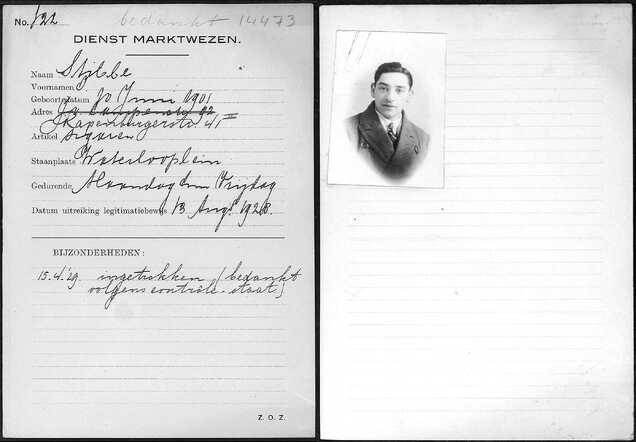 No. 122 bedankt 14473
DIENST MARKTWEZEN.
Naam
Voornamen
Geboortedatum 10 Juni 1901
Adres
Rapenburgerstr. 41 II
Artikel sigaren
Staanplaats Waterlooplein
Gedurende Maandag t/m Vrijdag
Datum uitreiking legitimatiebewijs 13 Aug. 1928.
BIJZONDERHEDEN:
15.4.'29. ingetrokken (bedankt
volgens contrôle-staat)
Z. O. Z.